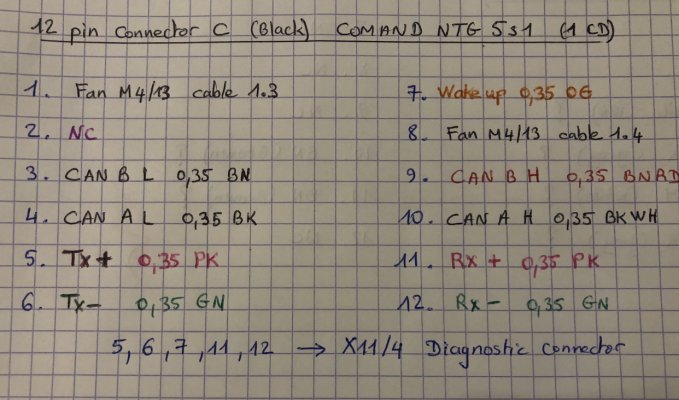 12 pin Connector C (Black) COMAND NTG 5s1 (1 CD)
1. Fan M4/13 cable 1.3
7. Wake up 0,35 OG
2. NC
8. Fan M4/13 cable 1.4
3. CAN B L 0,35 BN
9. CAN B H 0,35 BNRD
4. CAN A L 0,35 BK
10. CAN A H 0,35 BKWH
5. Tx+ 0,35 PK
11. Rx + 0,35 PK
6. Tx- 0,35 GN
12. Rx - 0,35 GN
5, 6, 7, 11, 12 → X11/4 Diagnostic Connector